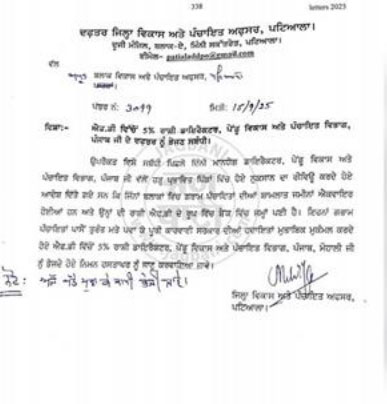 338 letters 2025
ਦਫਤਰ ਜ਼ਿਲ੍ਹਾ ਵਿਕਾਸ ਅਤੇ ਪੰਚਾਇਤ ਅਫ਼ਸਰ, ਪਟਿਆਲਾ।
ਦੂਜੀ ਮੰਜਿਲ, ਬਲਾਕ-ਏ, ਮਿੰਨੀ ਸਕੱਤਰੇਤ, ਪਟਿਆਲਾ।
ਈਮੇਲ- patialaddpo@gmail.com
ਵੱਲ
ਬਲਾਕ ਵਿਕਾਸ ਅਤੇ ਪੰਚਾਇਤ ਅਫਸਰ,
ਪੱਤਰ ਨੰ: 3099 ਮਿਤੀ: 15/9/25
ਵਿਸ਼ਾ:- ਐਫ.ਡੀ ਵਿੱਚੋਂ 5% ਰਾਸ਼ੀ ਡਾਇਰੈਕਟਰ, ਪੇਂਡੂ ਵਿਕਾਸ ਅਤੇ ਪੰਚਾਇਤ ਵਿਭਾਗ,
ਪੰਜਾਬ ਜੀ ਦੇ ਦਫਤਰ ਨੂੰ ਭੇਜਣ ਸਬੰਧੀ।
ਉਪਰੋਕਤ ਵਿਸ਼ੇ ਸਬੰਧੀ ਪਿਛਲੇ ਦਿੰਨੀ ਮਾਨਯੋਗ ਡਾਇਰੈਕਟਰ, ਪੇਂਡੂ ਵਿਕਾਸ ਅਤੇ
ਪੰਚਾਇਤ ਵਿਭਾਗ, ਪੰਜਾਬ ਜੀ ਵੱਲੋਂ ਹੜ੍ਹ ਪ੍ਰਭਾਵਿਤ ਪਿੰਡਾਂ ਵਿੱਚ ਹੋਏ ਨੁਕਸਾਨ ਦਾ ਰੀਵਿਊ ਕਰਦੇ ਹੋਏ
ਆਦੇਸ਼ ਦਿੱਤੇ ਗਏ ਸਨ ਕਿ ਜਿੰਨਾਂ ਬਲਾਕਾਂ ਵਿੱਚ ਗਰਾਮ ਪੰਚਾਇਤਾਂ ਦੀਆਂ ਸ਼ਾਮਲਾਤ ਜਮੀਨਾਂ ਐਕਵਾਇਰ
ਹੋਈਆਂ ਹਨ ਅਤੇ ਉਨ੍ਹਾਂ ਦੀ ਰਾਸ਼ੀ ਐਫ.ਡੀ ਦੇ ਰੂਪ ਵਿੱਚ ਬੈਂਕ ਵਿੱਚ ਜਮ੍ਹਾਂ ਪਈ ਹੈ। ਇਹਨਾਂ ਗਰਾਮ
ਪੰਚਾਇਤਾਂ ਪਾਸੋਂ ਤੁਰੰਤ ਮਤੇ ਪਵਾ ਕੇ ਪੂਰੀ ਕਾਰਵਾਈ ਸਰਕਾਰ ਦੀਆਂ ਹਦਾਇਤਾਂ ਮੁਤਾਬਿਕ ਮੁਕੰਮਲ ਕਰਦੇ
ਹੋਏ ਐਫ.ਡੀ ਵਿੱਚੋਂ 5% ਰਾਸ਼ੀ ਡਾਇਰੈਕਟਰ, ਪੇਂਡੂ ਵਿਕਾਸ ਅਤੇ ਪੰਚਾਇਤ ਵਿਭਾਗ, ਪੰਜਾਬ, ਮੋਹਾਲੀ ਜੀ
ਨੂੰ ਭੇਜਦੇ ਹੋਏ ਨਿਮਨ ਹਸਤਾਖਰ ਨੂੰ ਜਾਣੂ ਕਰਵਾਇਆ ਜਾਵੇ।
ਨੋਟ:
ਜ਼ਿਲ੍ਹਾ ਵਿਕਾਸ ਅਤੇ ਪੰਚਾਇਤ ਅਫਸਰ,
ਪਟਿਆਲਾ।